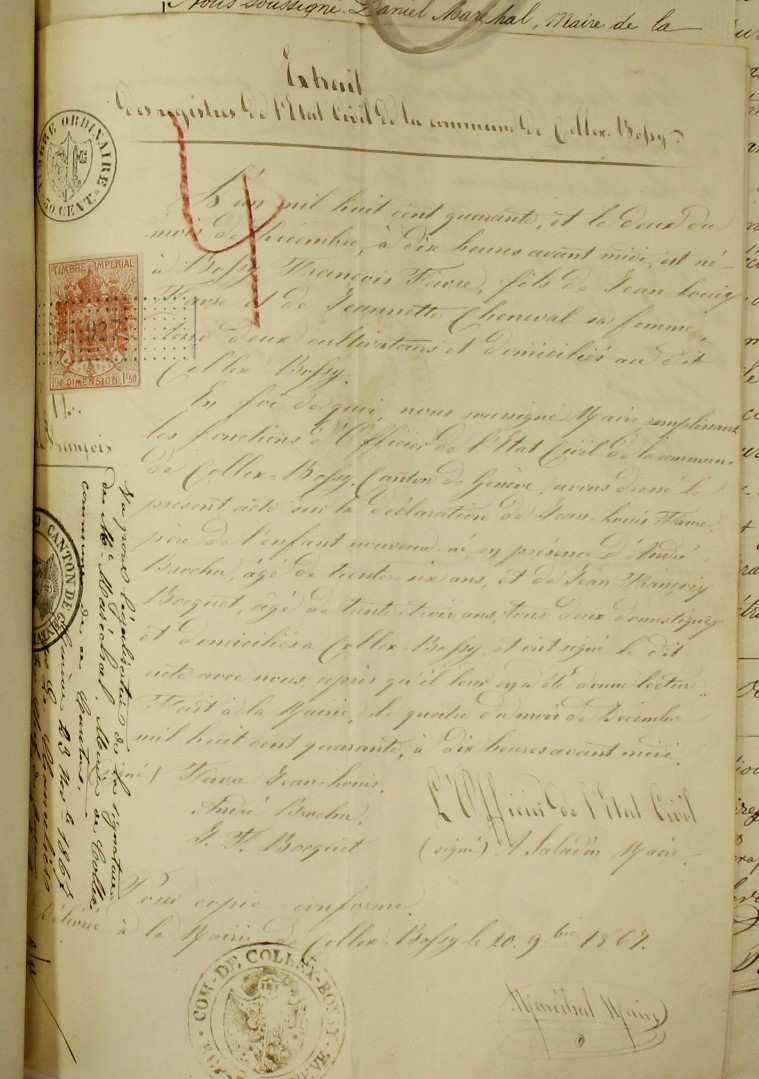 Nous soussigné Daniel Maréchal, Maire de la
Extrait
des registres de l'Etat Civil de la commune de Collex-Bossy.
TIMBRE ORDINAIRE
50 CENT.
4
L'an mil huit cent quarante, et le deux du
mois de Décembre, à dix heures avant midi, est né
à Bossy François Favre, fils de Jean Louis
Favre et de Jeannette Cheneval sa femme,
tous deux cultivateurs et domiciliés au dit
Collex Bossy.
TIMBRE IMPERIAL
1927
1f50 DIMENSION 1f50
En foi de quoi, nous soussigné Maire, remplissant
les fonctions d'Officier de l'Etat Civil de la commune
de Collex-Bossy, Canton de Genève, avons dressé le
présent acte sur la déclaration de Jean Louis Favre,
père de l'enfant nouveau né en présence d'André
Brocher, âgé de trente six ans, et de Jean François
Bocquet, âgé de trente trois ans, tous deux domestiques
et domiciliés à Collex-Bossy, et ont signé le dit
acte avec nous, après qu'il leur en a été donné lecture
Fait à la Mairie, le quatre du mois de Décembre
mil huit cent quarante, à dix heures avant midi.
signé) Favre Jean Louis.
André Brocher.
J. F. Bocquet
L'Officier de l'Etat Civil
(signé) A Saladin Maire.
Pour copie conforme.
Délivré à la Mairie de Collex-Bossy le 20. 9bre 1867.
Maréchal Maire
COM. DE COLLEX-BOSSY
François
CANTON DE
Vu pour légalisation de la signature
de Mr Maréchal, Maire de la
commune de Collex
Genève 23 Nov. 1867